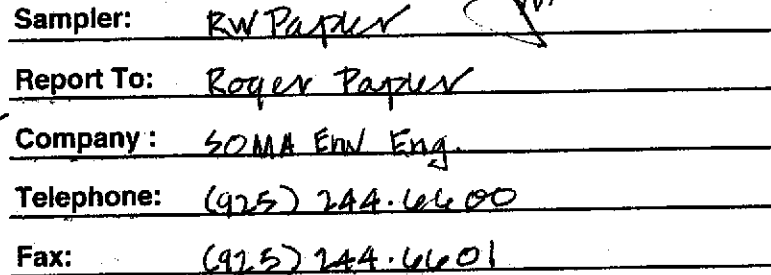 Sampler: RW Papler
Report To: Roger Papler
Company : SOMA Env Eng.
Telephone: (925) 244.6600
Fax: (925) 244.6601